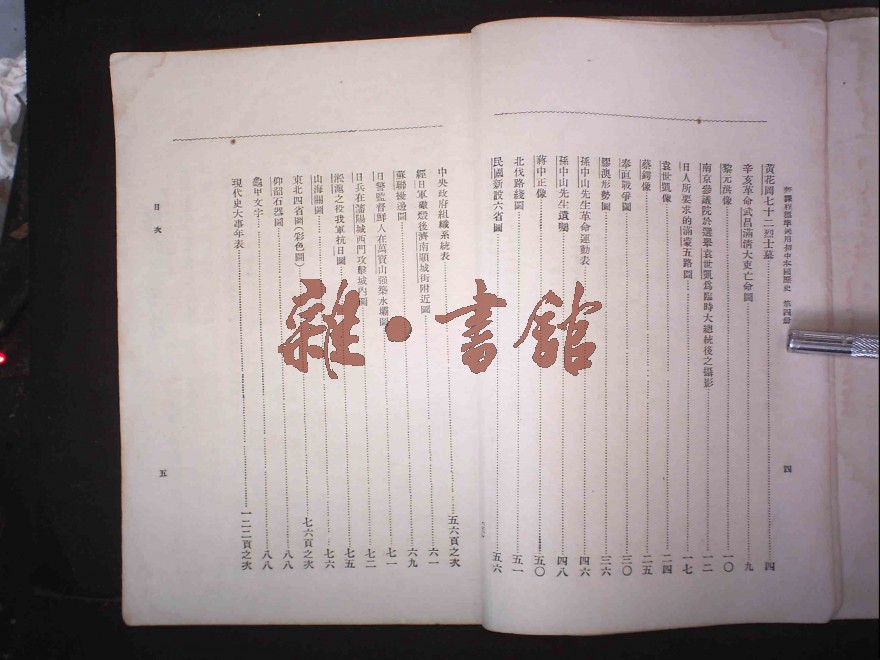 新課程標準適用初中本國歷史 第四冊
黃花岡七十二烈士墓……四
辛亥革命武昌滿清大吏亡命圖……九
黎元洪像……一〇
南京參議院於選舉袁世凱為臨時大總統後之攝影……一二
日人所要求的滿蒙五路圖……一七
袁世凱像……二四
蔡鍔像……二五
奉直戰爭圖……三〇
膠澳形勢圖……三六
孫中山先生革命運動表……四六
孫中山先生遺囑……四八
蔣中正像……五〇
北伐路綫圖……五一
民國新設六省圖……五六
四
中央政府組織系統表……五六頁之次
經日軍轟燬後濟南順城街附近圖……六一
蘇聯擾邊圖……六九
日警監督鮮人在萬寶山強築水壩圖……七一
日兵在瀋陽城西門攻擊城內圖……七二
淞滬之役我軍抗日圖……七五
山海關圖……七六
東北四省圖(彩色圖)……七六頁之次
仰韶石器圖……八八
龜甲文字……八八
現代史大事年表……一二二頁之次
目次
五
雜·書館